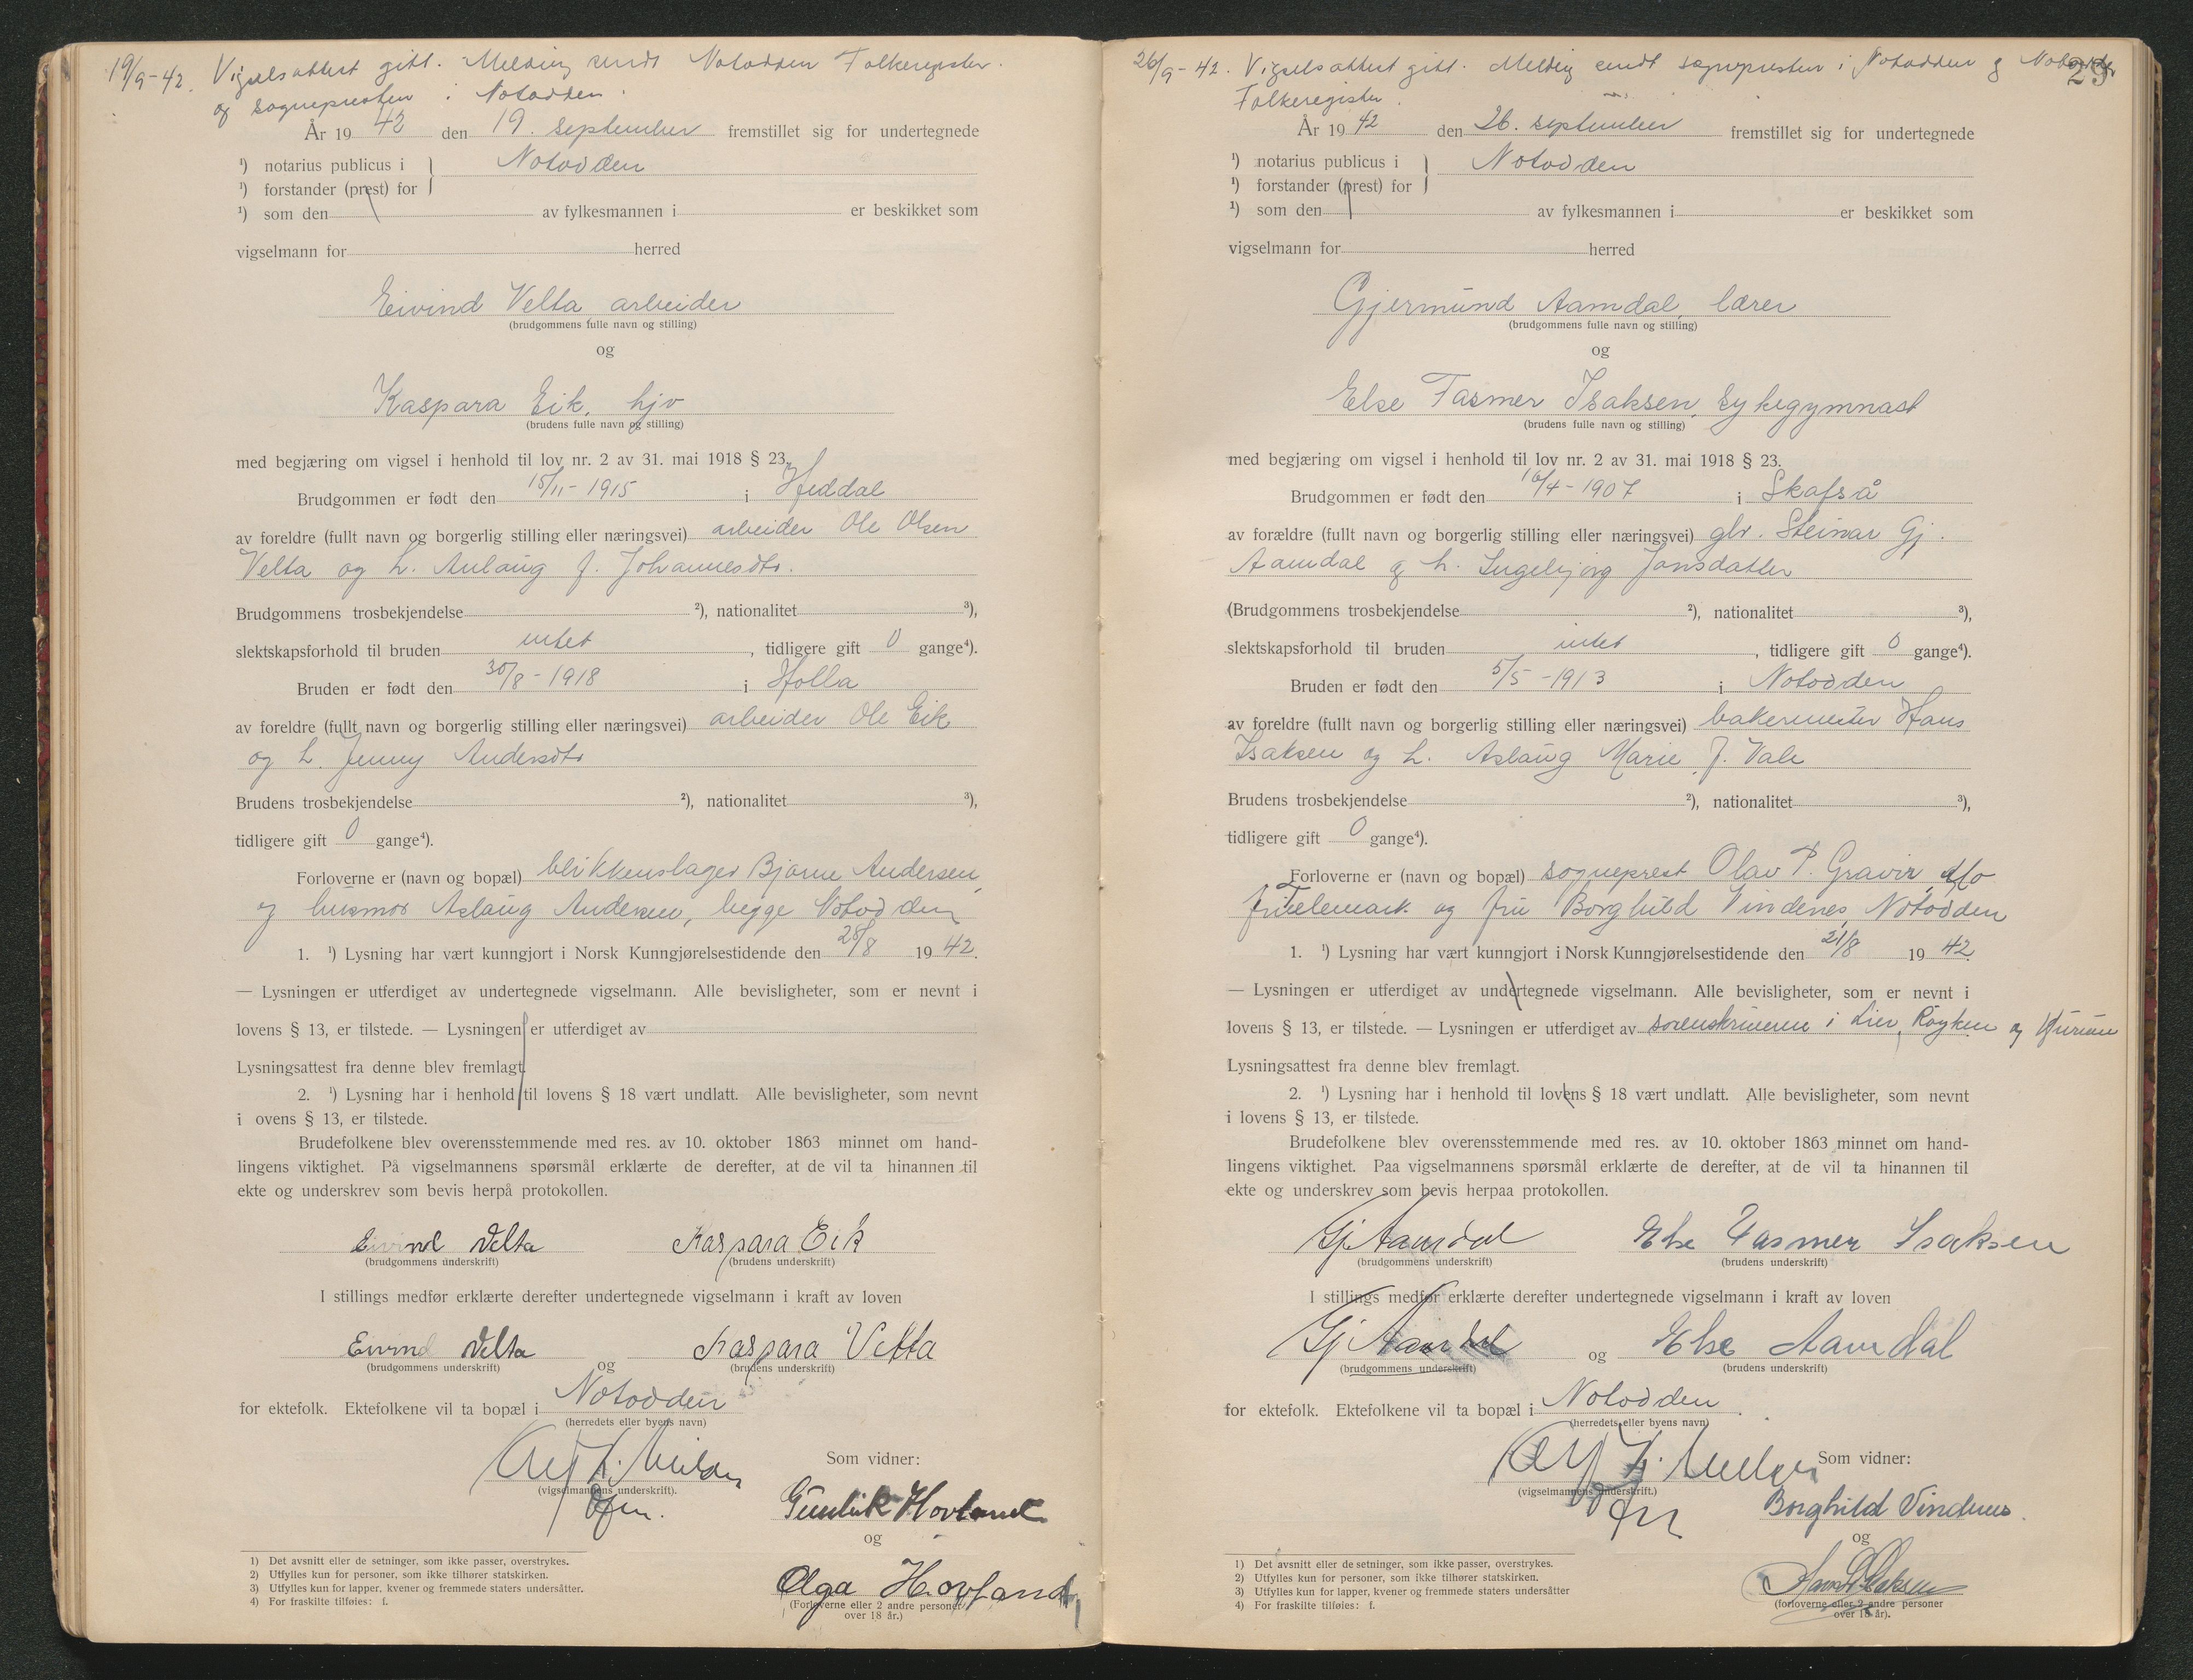 19/9-42. Vigselsattest gitt. Melding sendt Notodden Folkeregister.
og sognepresten i Notodden.
År 1942 den 19. september fremstillet sig for undertegnede
¹) notarius publicus i } Notodden
¹) forstander (prest) for
¹) som den av fylkesmannen i er beskikket som
vigselmann for herred
Eivind Velta, arbeider
(brudgommens fulle navn og stilling)
og
Kaspara Eik, hjv
(brudens fulle navn og stilling)
med begjæring om vigsel i henhold til lov nr. 2 av 31. mai 1918 § 23.
Brudgommen er født den 15/11-1915 i Heddal
av foreldre (fullt navn og borgerlig stilling eller næringsvei) arbeider Ole Olsen
Velta og h. Aslaug f. Johannesdtr.
Brudgommens trosbekjendelse ²), nationalitet ³),
slektskapsforhold til bruden intet, tidligere gift 0 gange⁴).
Bruden er født den 30/8-1918 i Holla
av foreldre (fullt navn og borgerlig stilling eller næringsvei) arbeider Ole Eik
og h. Jenny Andersdtr
Brudens trosbekjendelse ²), nationalitet ³),
tidligere gift 0 gange⁴).
Forloverne er (navn og bopæl) blikkenslager Bjarne Andersen,
og husmor Aslaug Andersen, begge Notodden
1. ¹) Lysning har vært kunngjort i Norsk Kunngjørelsestidende den 28/8 1942.
— Lysningen er utferdiget av undertegnede vigselmann. Alle bevisligheter, som er nevnt i
lovens § 13, er tilstede. — Lysningen er utferdiget av
Lysningsattest fra denne blev fremlagt.
2. ¹) Lysning har i henhold til lovens § 18 vært undlatt. Alle bevisligheter, som nevnt
i ovens § 13, er tilstede.
Brudefolkene blev overensstemmende med res. av 10. oktober 1863 minnet om hand-
lingens viktighet. På vigselmannens spørsmål erklærte de derefter, at de vil ta hinannen til
ekte og underskrev som bevis herpå protokollen.
Eivind Velta Kaspara Eik
(brudgommens underskrift) (brudens underskrift)
I stillings medfør erklærte derefter undertegnede vigselmann i kraft av loven
Eivind Velta og Kaspara Velta
(brudgommens underskrift) (brudens underskrift)
for ektefolk. Ektefolkene vil ta bopæl i Notodden
(herredets eller byens navn)
Som vidner:
(vigselmannens underskrift).
Gunleik Hovland
og
Olga Hovland
(Forloverne eller 2 andre personer
over 18 år.)
1) Det avsnitt eller de setninger, som ikke passer, overstrykes.
2) Utfylles kun for personer, som ikke tilhører statskirken.
3) Utfylles kun for lapper, kvener og fremmede staters undersåtter.
4) For fraskilte tilføies: f.
29
26/9-42. Vigselsattest gitt. Melding sendt sognepresten i Notodden og Notodden
Folkeregister.
År 1942 den 26. september fremstillet sig for undertegnede
¹) notarius publicus i } Notodden
¹) forstander (prest) for
¹) som den av fylkesmannen i er beskikket som
vigselmann for herred
Gjermund Aamdal, lærer
(brudgommens fulle navn og stilling)
og
Else Fasmer Isaksen, sykegymnast
(brudens fulle navn og stilling)
med begjæring om vigsel i henhold til lov nr. 2 av 31. mai 1918 § 23.
Brudgommen er født den 16/4-1907 i Skafså
av forældre (fullt navn og borgerlig stilling eller næringsvei) gbr. Steinar Gj.
Aamdal og h. Ingebjørg Jonsdatter
(Brudgommens trosbekjendelse ²), nationalitet ³),
slektskapsforhold til bruden intet, tidligere gift 0 gange⁴).
Bruden er født den 5/5-1913 i Notodden
av foreldre (fullt navn og borgerlig stilling eller næringsvei) bakermester Hans
Isaksen og h. Aslaug Marie f. Vale
Brudens trosbekjendelse ²), nationalitet ³),
tidligere gift 0 gange⁴).
Forloverne er (navn og bopæl) sogneprest Olav P. Gravir, Mo
Telemark og fru Borghild Vindenes, Notodden
1. ¹) Lysning har vært kunngjort i Norsk Kunngjørelsestidende den 21/8 1942.
— Lysningen er utferdiget av undertegnede vigselmann. Alle bevisligheter, som er nevnt i
lovens § 13, er tilstede. — Lysningen er utferdiget av sorenskriveren i Lier, Røyken og Hurum
Lysningsattest fra denne blev fremlagt.
2. ¹) Lysning har i henhold til lovens § 18 vært undlatt. Alle bevisligheter, som nevnt
i lovens § 13, er tilstede.
Brudefolkene blev overensstemmende med res. av 10. oktober 1863 minnet om hand-
lingens viktighet. Paa vigselmannens spørsmål erklærte de derefter, at de vil ta hinannen til
ekte og underskrev som bevis herpaa protokollen.
Gj Aamdal Else Fasmer Isaksen
(brudgommens underskrift) (brudens underskrift)
I stillings medfør erklærte derefter undertegnede vigselmann i kraft av loven
Gj Aamdal og Else Aamdal
(brudgommens underskrift) (brudens underskrift)
for ektefolk. Ektefolkene vil ta bopæl i Notodden.
(herredets eller byens navn)
Som vidner:
(vigselmannens underskrift.)
Borghild Vindenes.
og
Isaksen
(forloverne eller 2 andre personer
over 18 år).
1) Det avsnitt eller de setninger, som ikke passer, overstrykes.
2) Utfylles kun for personer, som ikke tilhører statskirken.
3) Utfylles kun for lapper, kvener og fremmede staters undersåtter
4) For fraskilte tilføies: f.